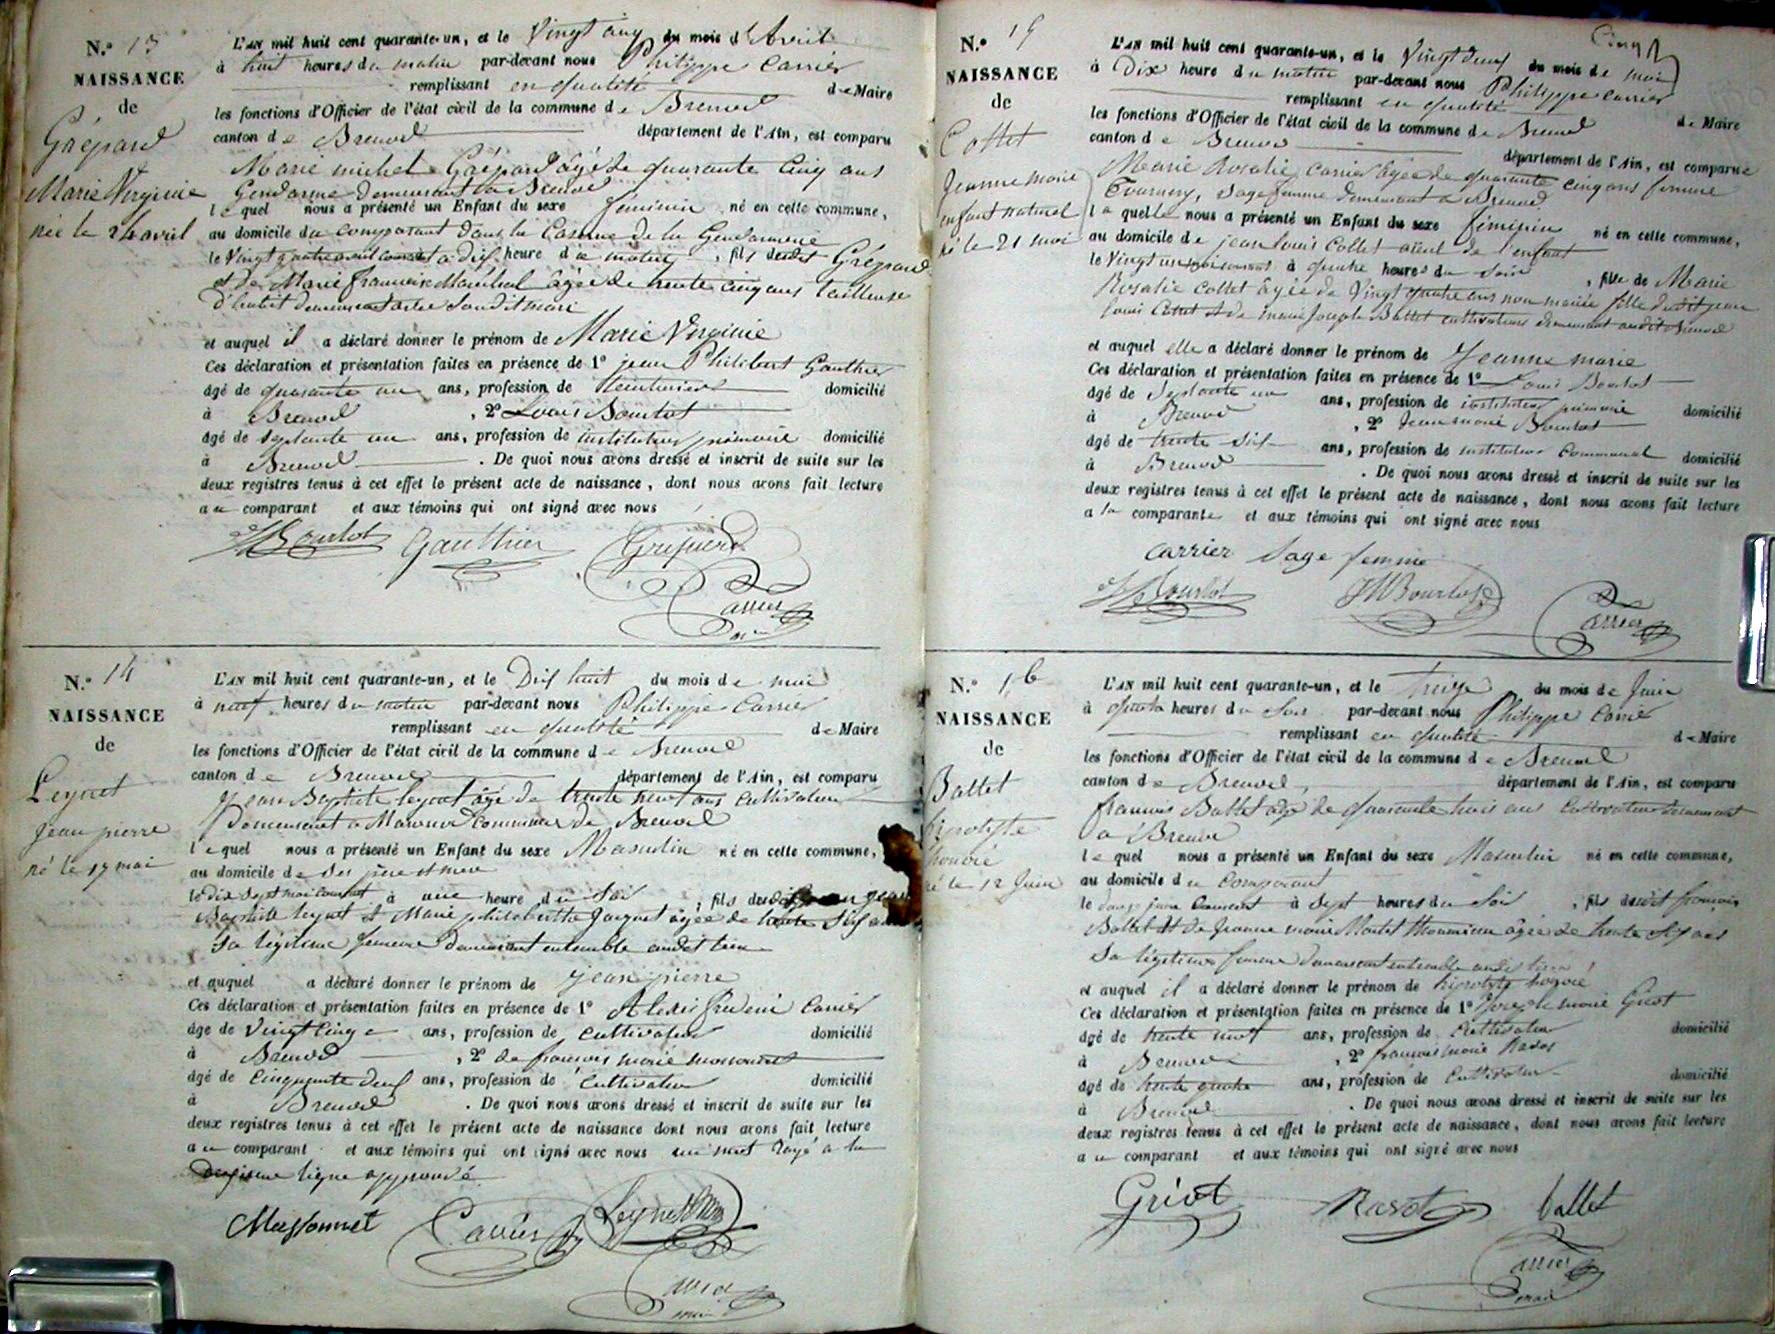 N.° 13
NAISSANCE
de
Grépard
Marie Virginie
née le 24 avril
L'AN mil huit cent quarante-un, et le Vingt cinq du mois d'Avril
à huit heures du matin par-devant nous Philippe Carrier
remplissant en qualité de Maire
les fonctions d'Officier de l'état civil de la commune de Brenod
canton de Brenod département de l'Ain, est comparu
Marie michel Grépard âgé de quarante Cinq ans
Gendarme demeurant à Brenod
lequel nous a présenté un Enfant du sexe féminin né en cette commune,
au domicile du comparant dans la Caserne de la Gendarmerie
le Vingt quatre avril courant à dix heure du matin, fils dudit Grépard
et de Marie françoise Maréchal âgée de trente cinq ans tailleuse
d'habit demeurant avec sondit mari
et auquel il a déclaré donner le prénom de Marie Virginie
Ces déclaration et présentation faites en présence de 1° jean Philibert Gauthier
âgé de quarante un ans, profession de domicilié
à Brenod, 2° Louis Bourlot
âgé de septante un ans, profession de instituteur primaire domicilié
à Brenod. De quoi nous avons dressé et inscrit de suite sur les
deux registres tenus à cet effet le présent acte de naissance, dont nous avons fait lecture
au comparant et aux témoins qui ont signé avec nous
Bourlot Gauthier Grépard
Carrier
N.° 14
NAISSANCE
de
Leynet
jean pierre
né le 17 mai
L'AN mil huit cent quarante-un, et le Dix huit du mois de mai
à neuf heures du matin par-devant nous Philippe Carrier
remplissant en qualité de Maire
les fonctions d'Officier de l'état civil de la commune de Brenod
canton de Brenod département de l'Ain, est comparu
Jean Baptiste leynet âgé de trente neuf ans Cultivateur
Demeurant a commune de Brenod
lequel nous a présenté un Enfant du sexe Masculin né en cette commune,
au domicile de ses père et mère
le dix sept mai courant à une heure du Soir, fils dudit jean
Baptiste leynet et Marie philiberthe Jacquet âgée de trente Six ans
Sa légitime femme Demeurant ensemble audit lieu
et auquel a déclaré donner le prénom de jean pierre
Ces déclaration et présentation faites en présence de 1° Alexis Carrier
âgé de Vingt Cinq ans, profession de Cultivateur domicilié
à Brenod, 2° de françois marie massonnet
âgé de Cinquante deux ans, profession de Cultivateur domicilié
à Brenod. De quoi nous avons dressé et inscrit de suite sur les
deux registres tenus à cet effet le présent acte de naissance dont nous avons fait lecture
au comparant et aux témoins qui ont signé avec nous un mot rayé a la
ligne approuvé
Massonnet Carrier Leynet
Carrier
maire
N.° 15
NAISSANCE
de
Collet
Jeanne marie
enfant naturel
né le 21 mai
Cinq
L'AN mil huit cent quarante-un, et le Vingt deux du mois de mai
à Dix heure du matin par-devant nous Philippe Carrier
remplissant en qualité de Maire
les fonctions d'Officier de l'état civil de la commune de Brenod
canton de Brenod département de l'Ain, est comparue
Marie Rosalie Carrier âgée de quarante cinq ans femme
Tournery, sage femme demeurant à Brenod
laquelle nous a présenté un Enfant du sexe féminin né en cette commune,
au domicile de jean louis Collet aïeul de l'enfant
le Vingt un mai courant à quatre heures du soir, fille de Marie
Rosalie Collet âgée de Vingt quatre ans non mariée fille dudit jean
louis Collet et de marie josephe Ballet cultivateurs demeurant audit Brenod
et auquel elle a déclaré donner le prénom de Jeanne marie
Ces déclaration et présentation faites en présence de 1° Louis Bourlot
âgé de Septante un ans, profession de instituteur primaire domicilié
à Brenod, 2° Jean marie Bourlot
âgé de trente six ans, profession de instituteur Communal domicilié
à Brenod. De quoi nous avons dressé et inscrit de suite sur les
deux registres tenus à cet effet le présent acte de naissance, dont nous avons fait lecture
a la comparante et aux témoins qui ont signé avec nous
carrier Sage femme
Bourlot JMBourlot
Carrier
N.° 16
NAISSANCE
de
Ballet
hipolyte
honoré
né le 12 Juin
L'AN mil huit cent quarante-un, et le Treize du mois de Juin
à quatre heures du Soir par-devant nous Philippe Carrier
remplissant en qualité de Maire
les fonctions d'Officier de l'état civil de la commune de Brenod
canton de Brenod, département de l'Ain, est comparu
françois Ballet âgé de quarante trois ans Cultivateur demeurant
à Brenod
lequel nous a présenté un Enfant du sexe Masculin né en cette commune,
au domicile du Comparant
le douze juin Courant à Sept heures du Soir, fils dudit françois
Ballet et de Jeanne marie âgée de trente Six ans
Sa légitime femme demeurant ensemble audit lieu
et auquel il a déclaré donner le prénom de hipolyte honoré
Ces déclaration et présentation faites en présence de 1° Joseph marie Griot
âgé de trente neuf ans, profession de Cultivateur domicilié
à Brenod, 2° françois marie Ravot
âgé de trente quatre ans, profession de Cultivateur domicilié
à Brenod. De quoi nous avons dressé et inscrit de suite sur les
deux registres tenus à cet effet le présent acte de naissance, dont nous avons fait lecture
au comparant et aux témoins qui ont signé avec nous
Griot Ravot ballet
Carrier
maire